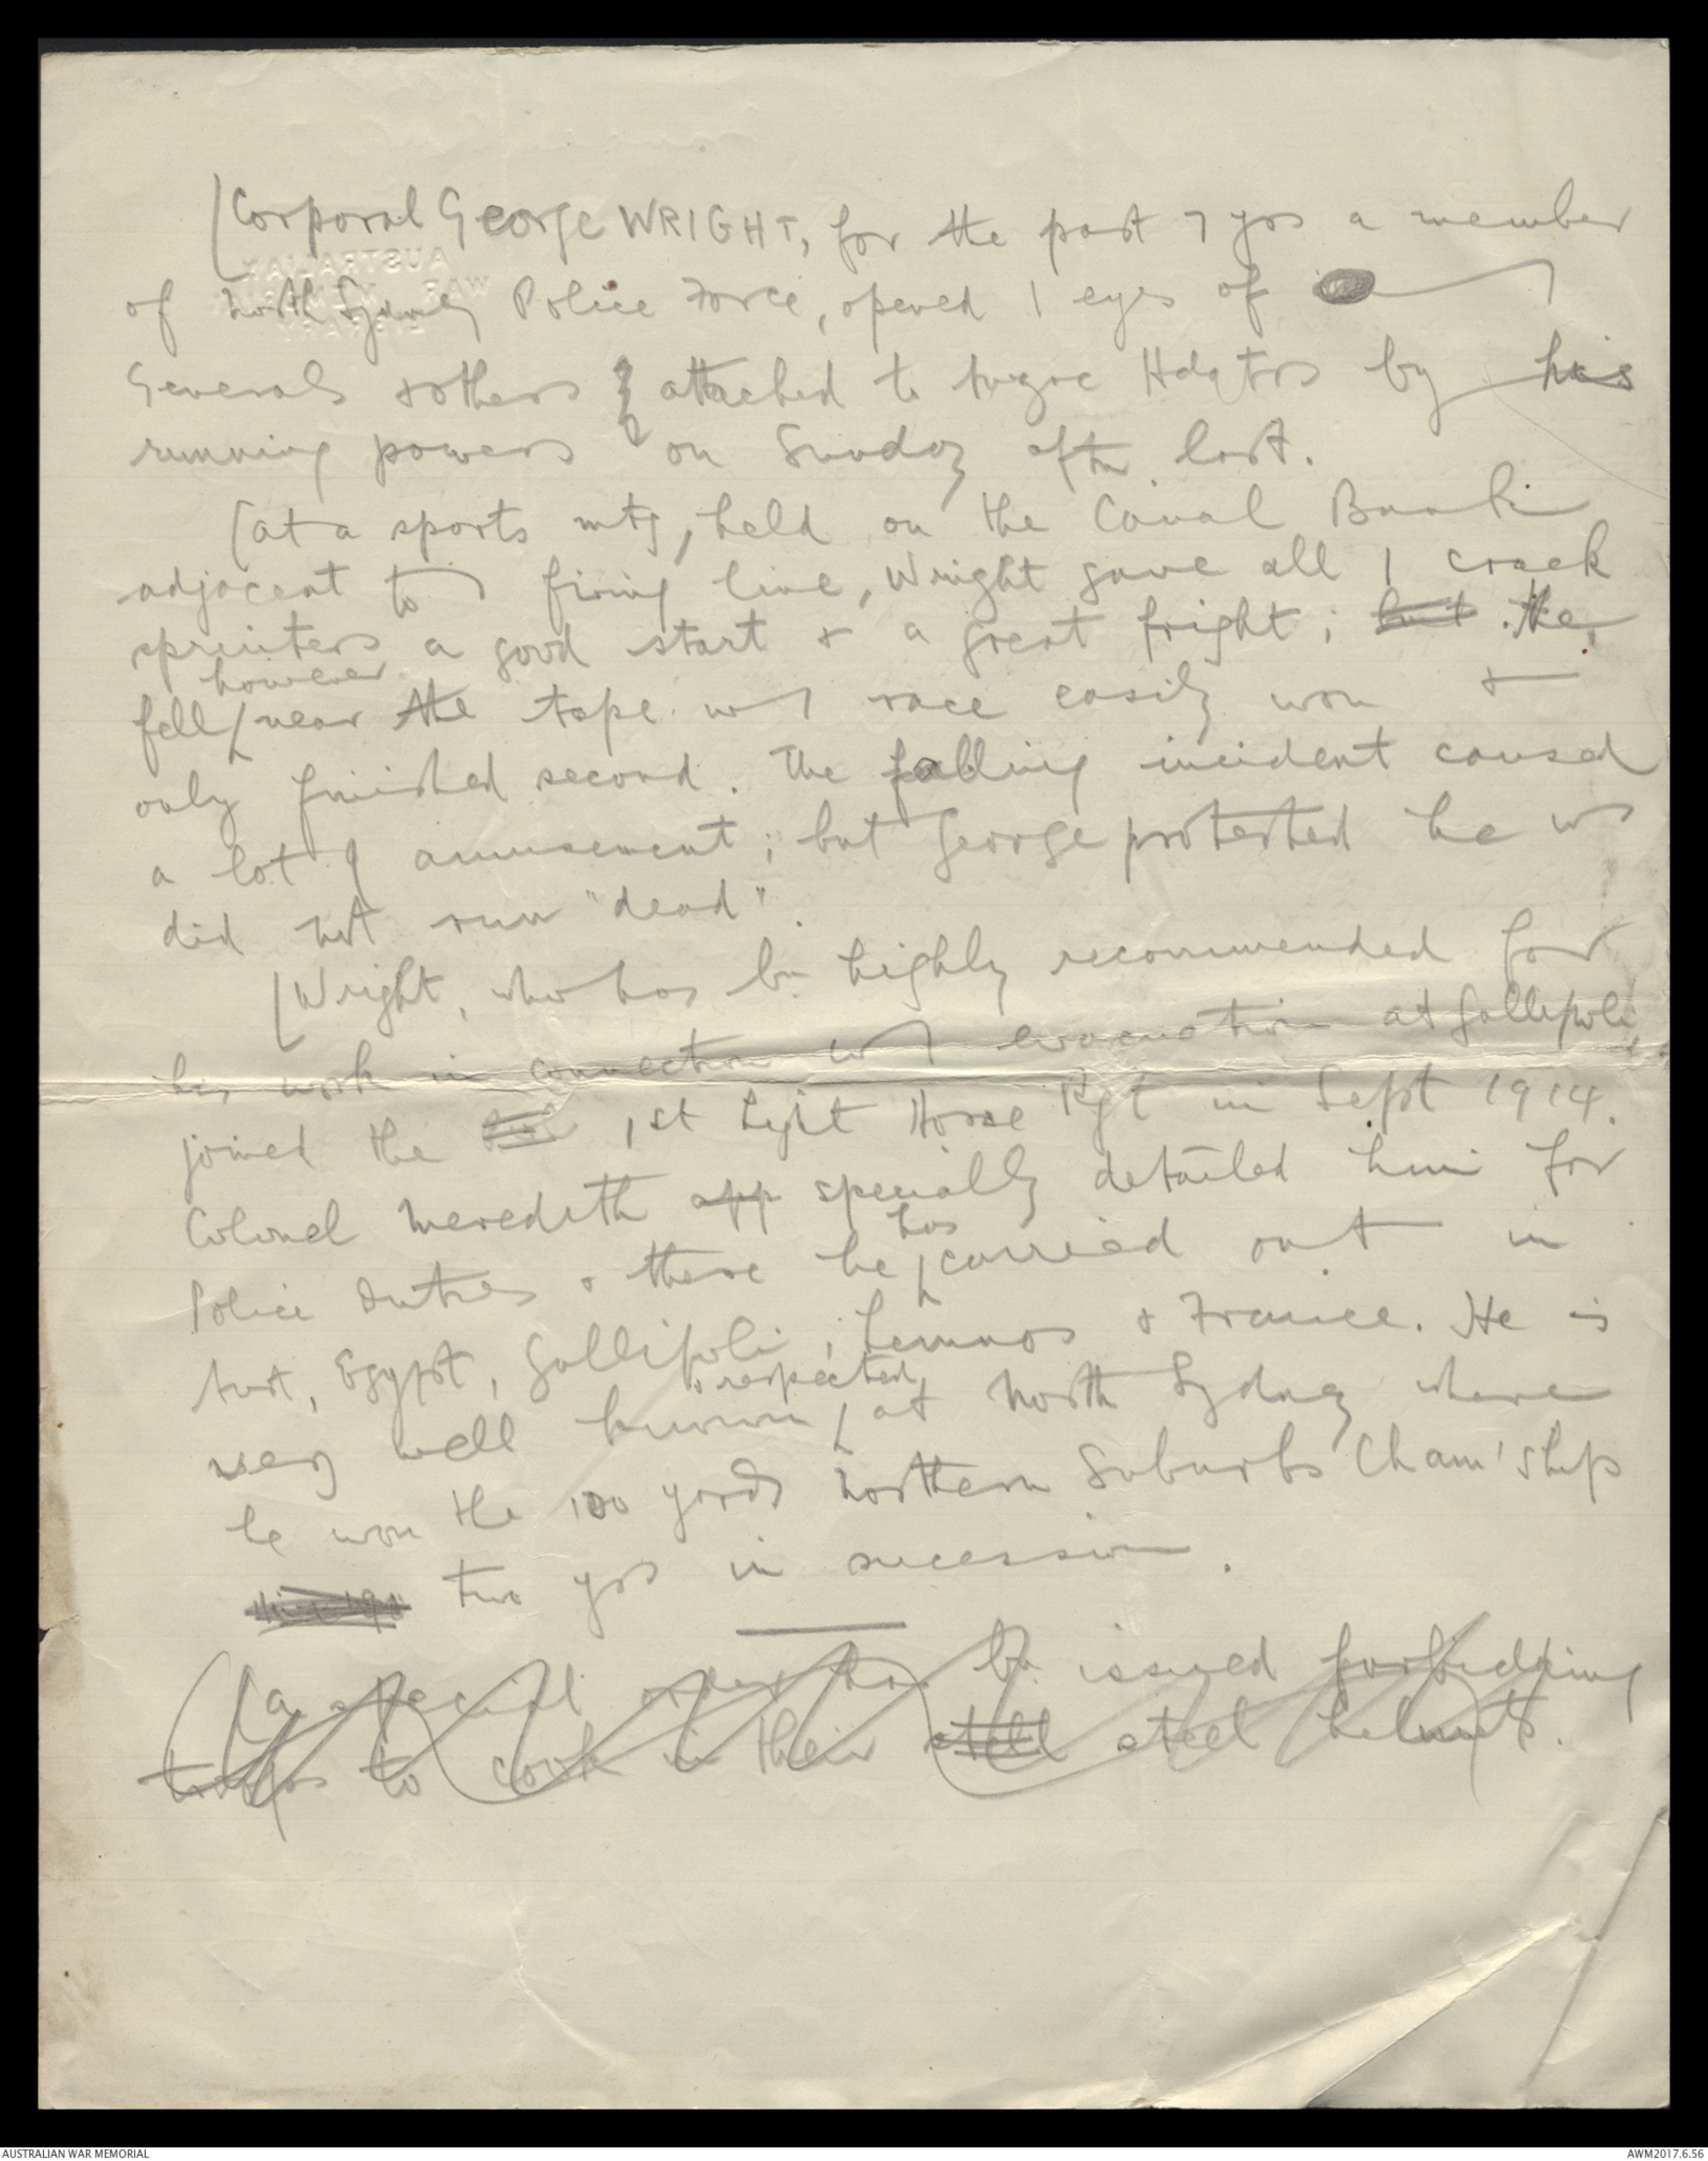 Corporal George WRIGHT, for the past 7 yrs a member
of North Sydney Police Force, opened / eyes of
Generals & others attached to Anzac Hdqtrs by his
running powers on Sunday aftn last.
(at a sports mtg, held on the Canal Bank
adjacent to / firing line, Wright gave all / crack
sprinters a good start & a great fright; but he
however
fell near the tape w / race easily won &
only finished second. The falling incident caused
a lot of amusement; but George protested he
did not run "dead".
Wright, who has bn highly recommended for
his work in connection w / evacuation at Gallipoli
joined the 1st Light Horse Rgt in Sept 1914.
Colonel Meredith app specially detailed him for
has
Police duties & these he carried out in
Aust, Egypt, Gallipoli, Lemnos & France. He is
& respected
very well known at North Sydney where
he won the 100 yards Northern Suburbs Cham'ship
two yrs in sucession.
(a special order has bn issued forbidding
troops to cook in their steel helmets.
AUSTRALIAN
WAR MEMORIAL
AUSTRALIAN WAR MEMORIAL
AWM2017.6.56